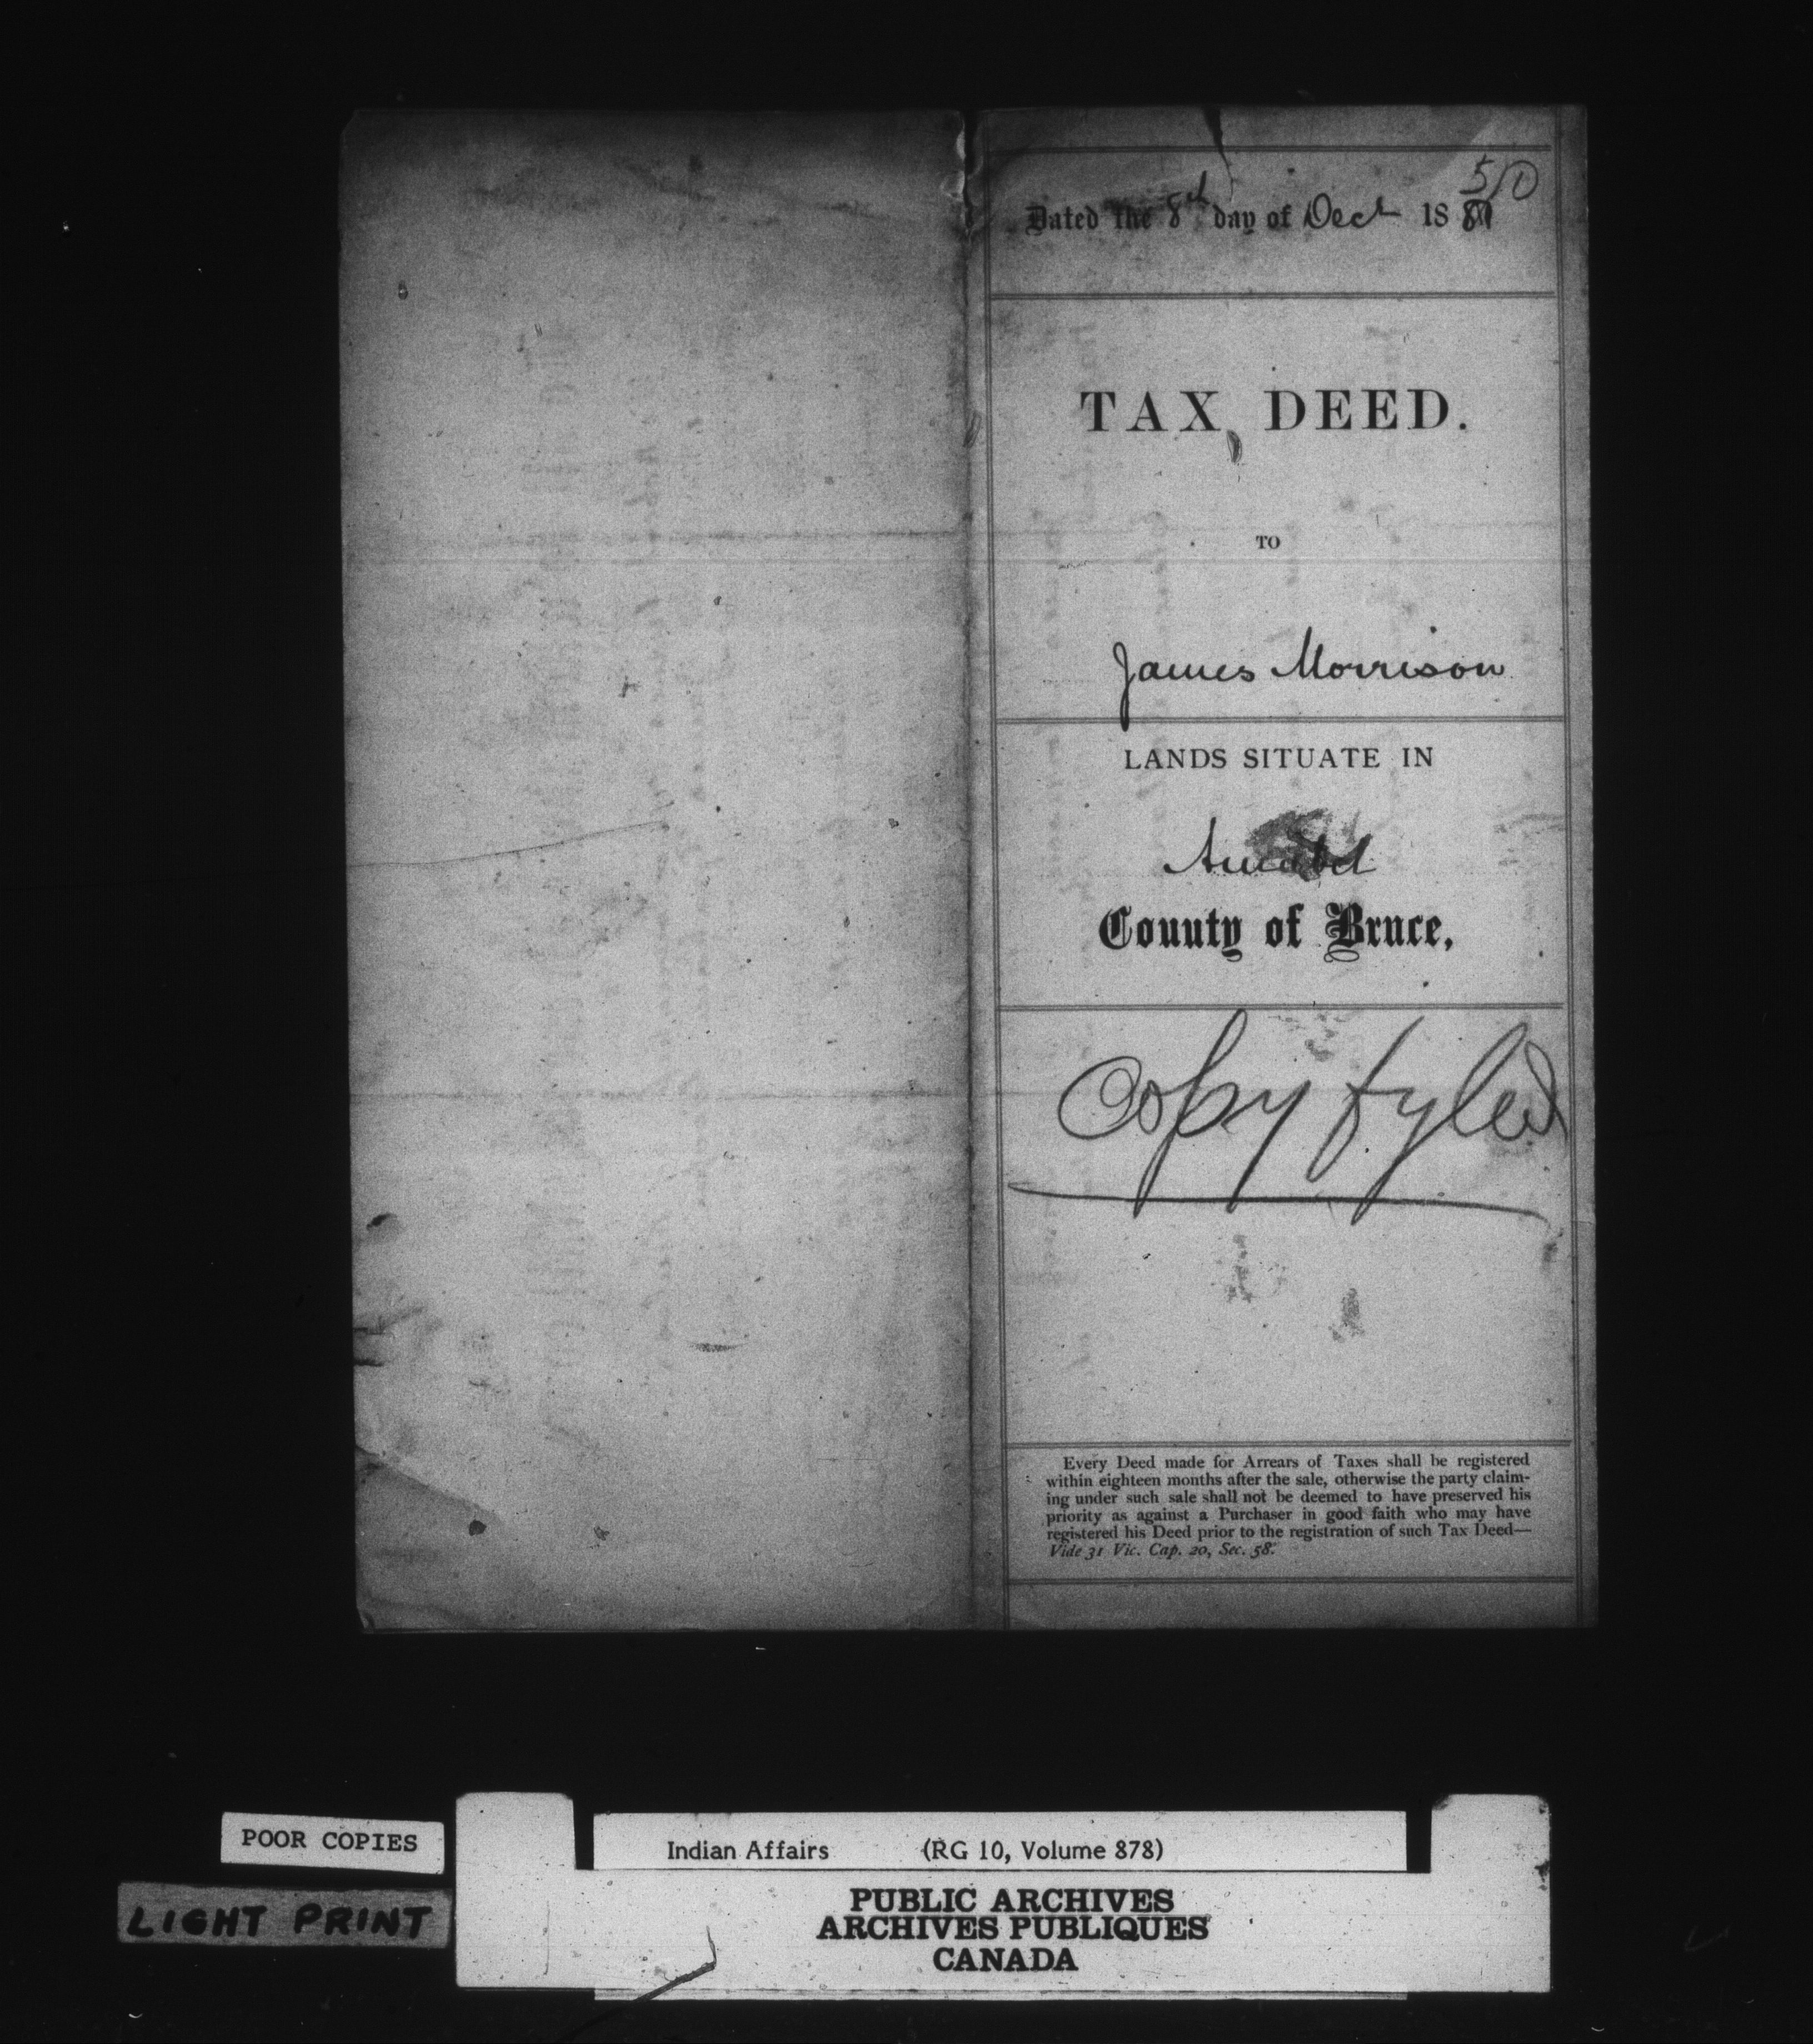 Dated the 8th day of Dect 18
TAX DEED.
TO
James Morrison
LANDS SITUATE IN
Amabel
County of Bruce,
Copy fyled
Every Deed made for Arrears of Taxes shall be registered
within eighteen months after the sale, otherwise the party claim-
ing under such sale shall not be deemed to have preserved his
priority as against a Purchaser in good faith who may have
registered his Deed prior to the registration of such Tax Deed—
Vide 31 Vic. Cap. 20, Sec. 58.
POOR COPIES
LIGHT PRINT
Indian Affairs (RG 10, Volume 878)
PUBLIC ARCHIVES
ARCHIVES PUBLIQUES
CANADA